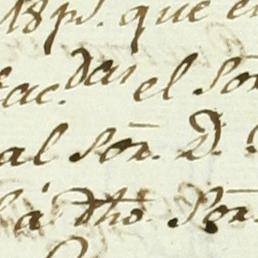 18 ps. que en
sac.das el Sōr
al Sōr. D.
á dho. Sōr.